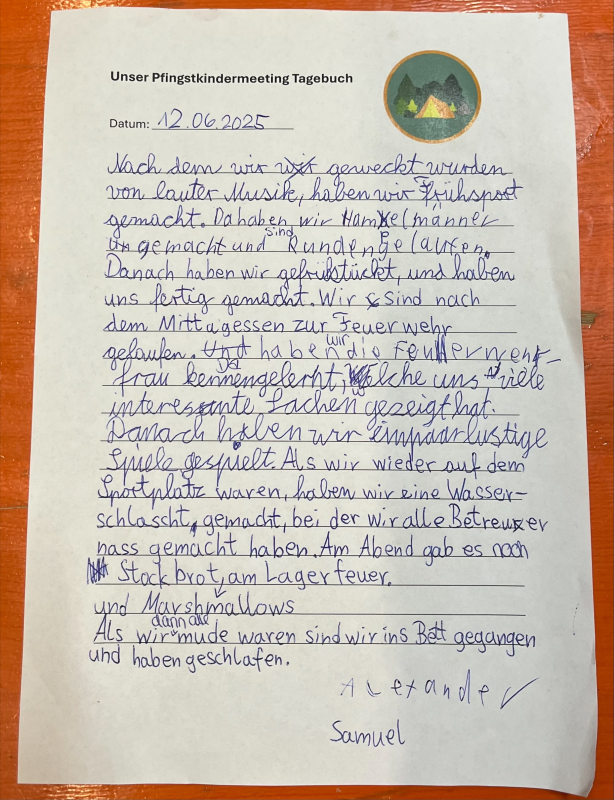 Unser Pfingstkindermeeting Tagebuch
Datum: 12.06.2025
Nach dem wir geweckt wurden
von lauter Musik, haben wir Frühsport
gemacht. Da haben wir Hampelmänner
gemacht und sind Runden gelaufen.
Danach haben wir gefrühstückt, und haben
uns fertig gemacht. Wir sind nach
dem Mittagessen zur Feuerwehr
gelaufen. Da haben wir die Feuerwehr-
frau kennengelernt, welche uns viele
interessante Sachen gezeigt hat.
Danach haben wir einpaar lustige
Spiele gespielt. Als wir wieder auf dem
Sportplatz waren, haben wir eine Wasser-
schlasscht, gemacht, bei der wir alle Betreuer
nass gemacht haben. Am Abend gab es noch
Stockbrot, am Lagerfeuer.
und Marshmallows
Als wir dann alle mude waren sind wir ins Bett gegangen
und haben geschlafen.
Alexander
Samuel